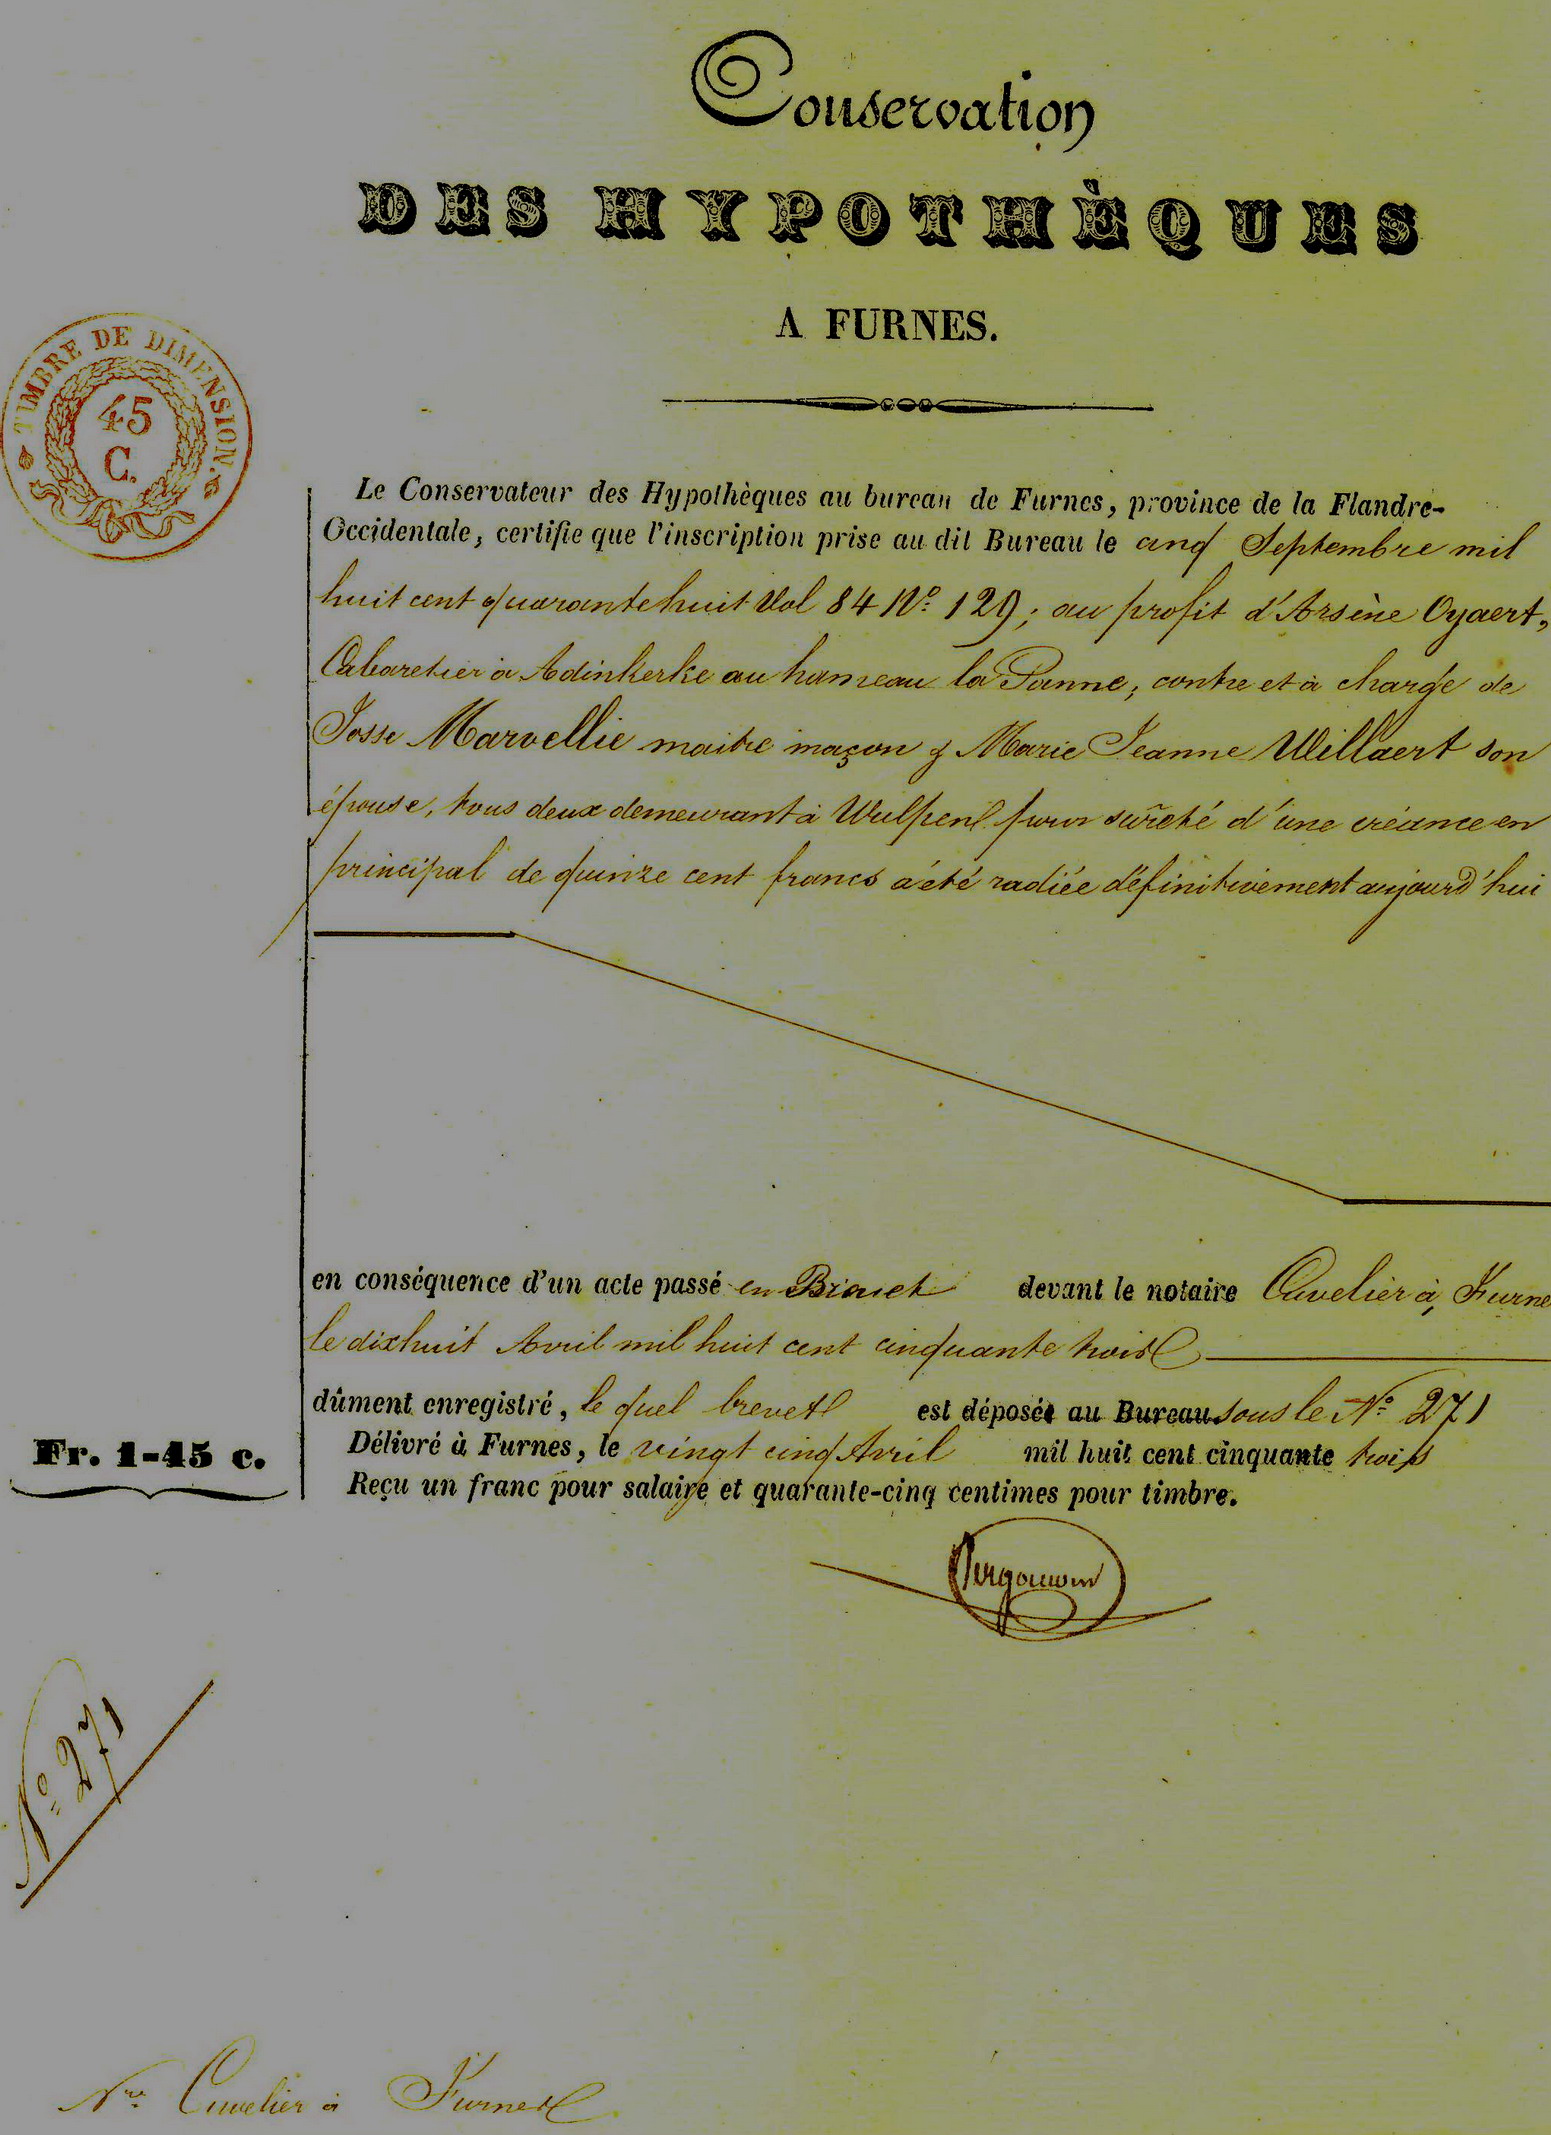 Conservation
DES HYPOTHÈQUES
A FURNES.
TIMBRE DE DIMENSION.
45
C.
Le Conservateur des Hypothèques au bureau de Furnes, province de la Flandre-
Occidentale, certifie que l'inscription prise au dit Bureau le cinq Septembre mil
huit cent quarante huit Vol 84 Nº 129; au profit d'Arsène Oyaert,
Cabaretier à Adinkerke au hameau la Panne, contre et à charge de
Josse Marvellie maitre maçon & Marie Jeanne Willaert son
épouse, tous deux demeurant à Wulpen pour sûreté d'une créance en
principal de quinze cent francs a été radiée définitivement aujourd'hui
en conséquence d'un acte passé en Brevet devant le notaire Cuvelier à Furnes
le dixhuit Avril mil huit cent cinquante trois
dûment enregistré, le quel brevet est déposé au Bureau sous le Nº 271
Délivré à Furnes, le vingt cinq Avril mil huit cent cinquante trois
Fr. 1-45 c.
Reçu un franc pour salaire et quarante-cinq centimes pour timbre.
Nº 271
Nre Cuvelier à Furnes